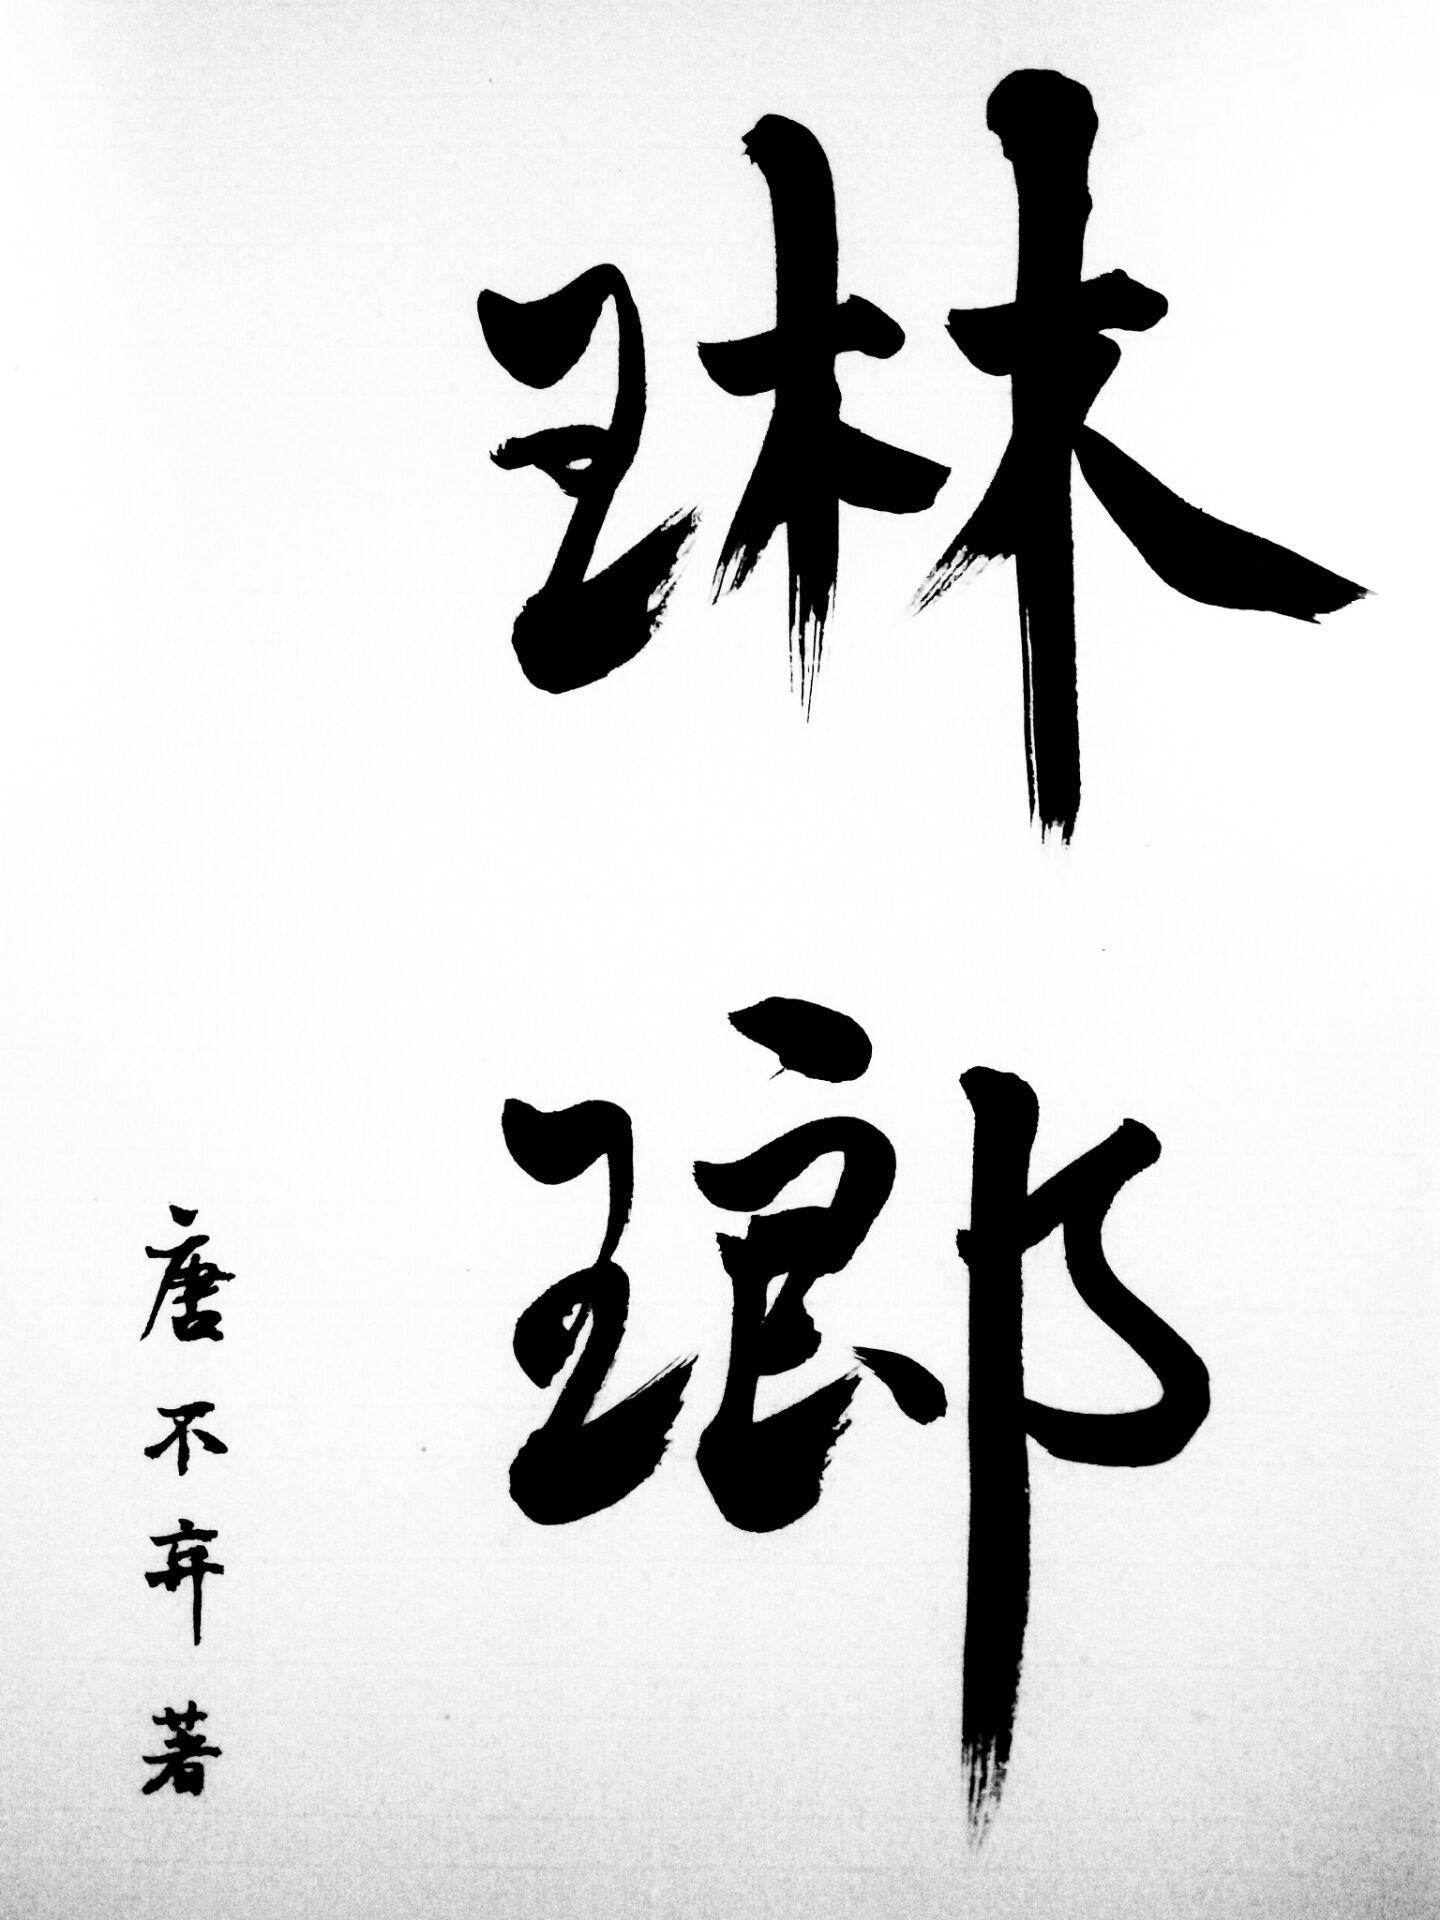 琳琅
唐不弃著